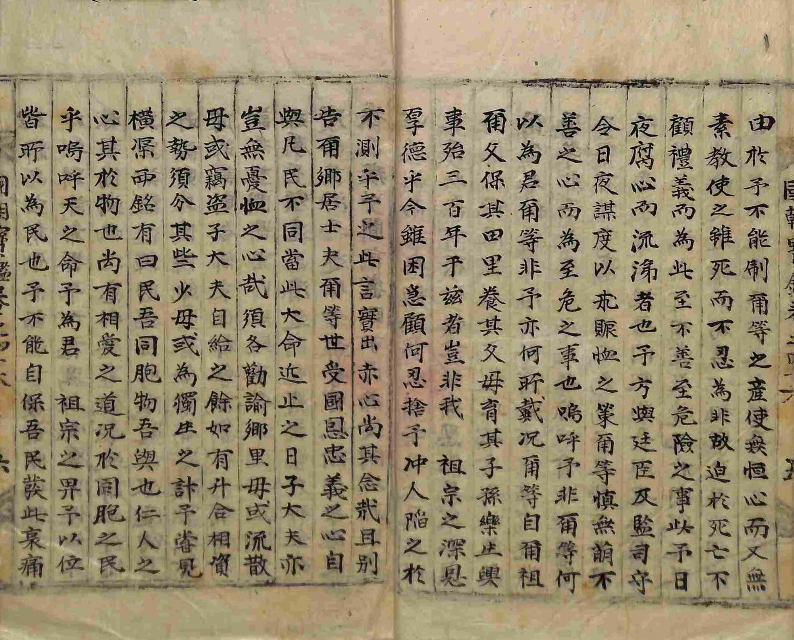 由於予不能制爾等之產使無恒心而又無
素教使之雖死而不忍為非敢迫於死亡不
顧禮義而為此至不善至危險之事此予日
夜腐心而流涕者也予方與廷臣及監司守
令日夜謀度以求賑恤之策爾等愼無萠不
善之心而為至危之事也嗚呼予非爾等何
以為君爾等非予亦何所戴况爾等自爾祖
爾父保其田里養其父母育其子孫樂生興
事殆三百年于兹者豈非我 祖宗之深恩
厚德乎今雖困急顧何忍捨予冲人陷之於
不測乎予之此言實出赤心尚其念哉且別
告爾鄉居士夫爾等世受國恩忠義之心自
與凡民不同當此大命近止之日子大夫亦
豈無憂恤之心哉須各勸諭鄉里毋或流散
毋或竊盜子大夫自給之餘如有升合相資
之勢須分其些少毋或為獨生之計予嘗見
橫渠西銘有曰民吾同胞物吾與也仁人之
心其於物也尚有相愛之道况於同胞之民
乎嗚呼天之命予為君 祖宗之畀予以位
皆所以為民也予不能自保吾民發此哀痛